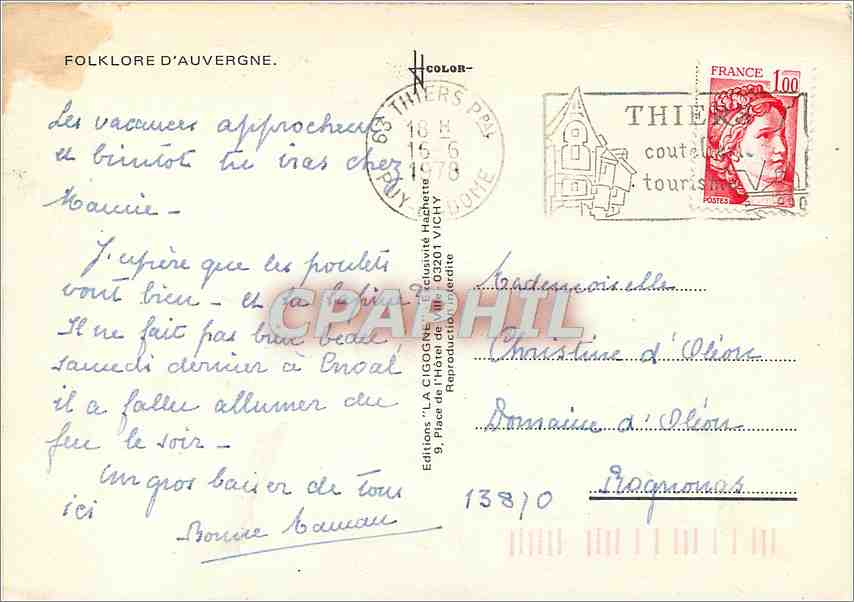 FOLKLORE D'AUVERGNE.
COLOR
63 THIERS PPAL
18 H
16-6
1978
PUY DE DOME
THIERS
coutel
tourisme
FRANCE 1,00
POSTES
Les vacances approchent
et bientôt tu iras chez
Mamie -
J'espère que les poulets
vont bien - et ta lapine ?
Il ne fait pas bien beau
samedi dernier à Enval
il a fallu allumer du
feu le soir -
Un gros baiser de tous
ici
Bonne Maman
Editions "LA CIGOGNE" - Exclusivité Hachette
9, Place de l'Hôtel de Ville - 03201 VICHY
Reproduction interdite
Mademoiselle
Christine d'Oléon
Domaine d'Oléon
13810 Rognonas
CPAPHIL